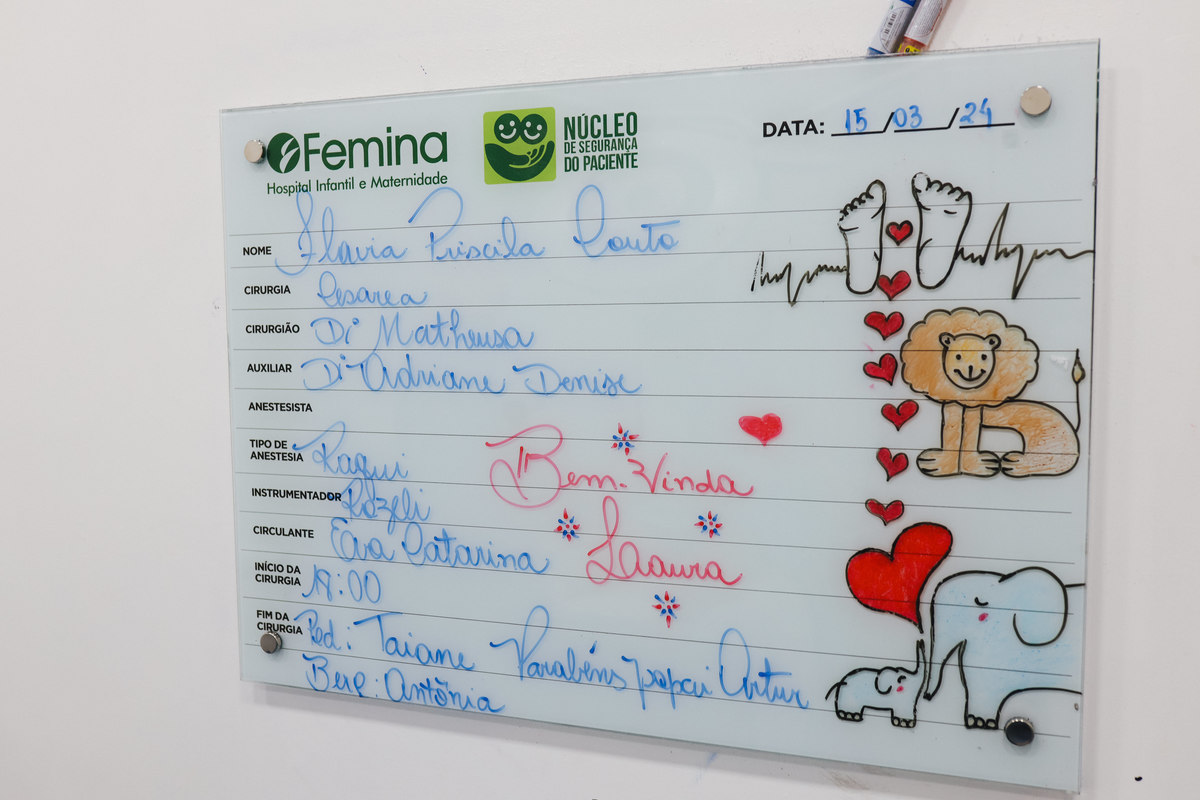 Femina
Hospital Infantil e Maternidade
NÚCLEO
DE SEGURANÇA
DO PACIENTE
DATA: 15/03/24
NOME Flavia Priscila Couto
CIRURGIA Cesarea
CIRURGIÃO Dr Matheusa
AUXILIAR Dr Adriane Denise
ANESTESISTA
TIPO DE ANESTESIA Raqui
INSTRUMENTADOR Rozeli
CIRCULANTE Eva Catarina
INÍCIO DA CIRURGIA 18:00
FIM DA CIRURGIA Ped: Taiane
Berç: Antônia
Bem-Vinda
Laura
Parabéns papai Artur